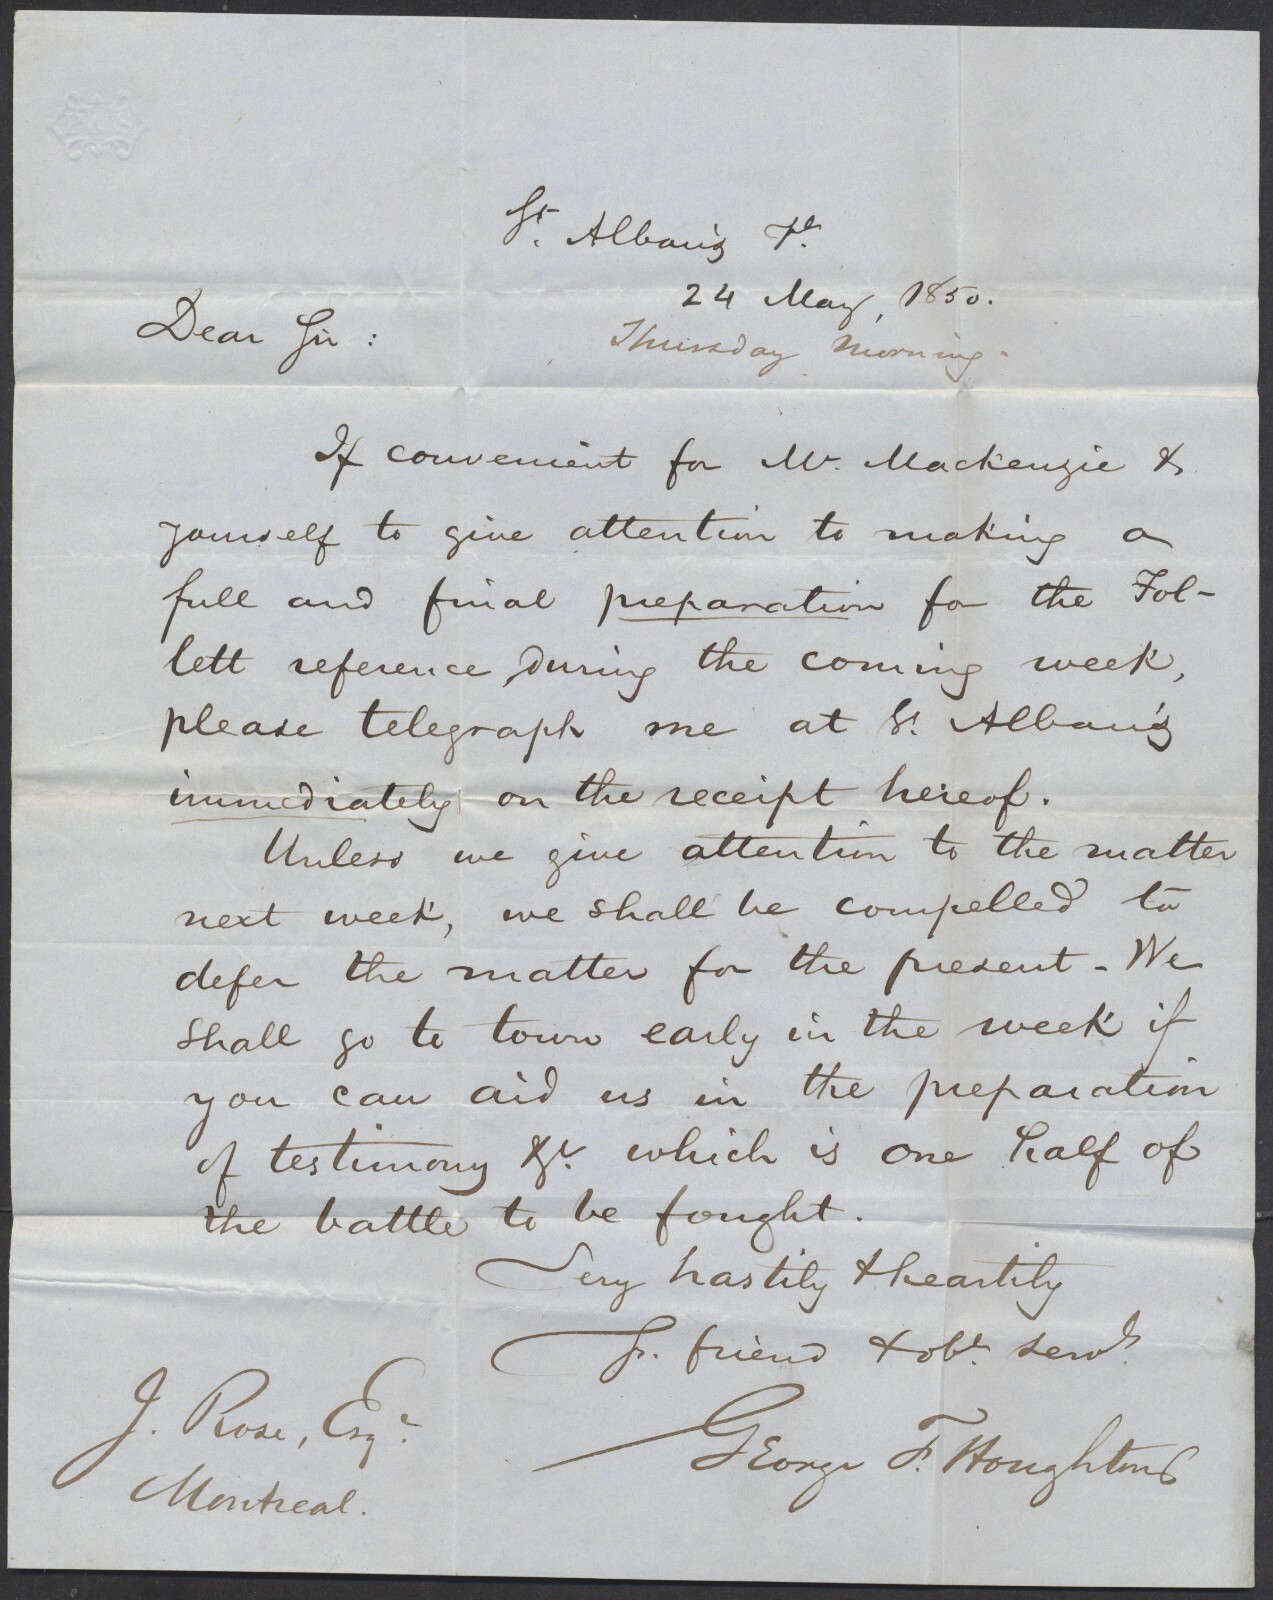 St. Albans Vt.
24 May, 1850.
Thursday morning.
Dear Sir:
If convenient for Mr. Mackenzie &
yourself to give attention to making a
full and final preparation for the Fol-
lett reference, during the coming week,
please telegraph me at St. Albans
immediately on the receipt hereof.
Unless we give attention to the matter
next week, we shall be compelled to
defer the matter for the present - We
shall go to town early in the week if
you can aid us in the preparation
of testimony &c. which is one half of
the battle to be fought.
Very hastily & heartily
Yr. friend & obt. servt.
George F. Houghton
J. Rose, Esqr.
Montreal.